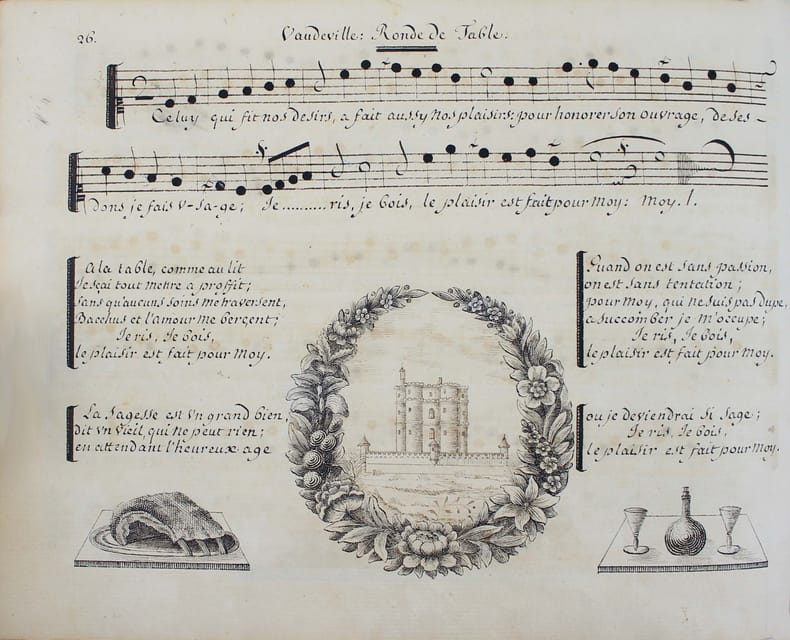 26.
Vaudeville: Ronde de Table.
Celuy qui fit nos desirs, a fait aussy nos plaisirs: pour honorer son ouvrage, de ses -
Dons je fais V-sa-ge; Je..........ris, je bois, le plaisir est fait pour Moy: Moy. /.
A la table, comme au lit
Je sçai tout mettre a proffit;
sans qu'aucuns soins me traversent,
Bacchus et l'amour me bercent;
Je ris, Je bois,
le plaisir est fait pour Moy.
La sagesse est Un grand bien
dit Un Vieil qui ne peut rien;
en attendant l'heureux age
Quand on est sans passion,
on est sans tentation;
pour moy, qui ne suis pas dupe,
a succomber je m'occupe;
Je ris, Je bois,
le plaisir est fait pour Moy.
ou je deviendrai si sage;
Je ris, Je bois,
le plaisir est fait pour Moy.